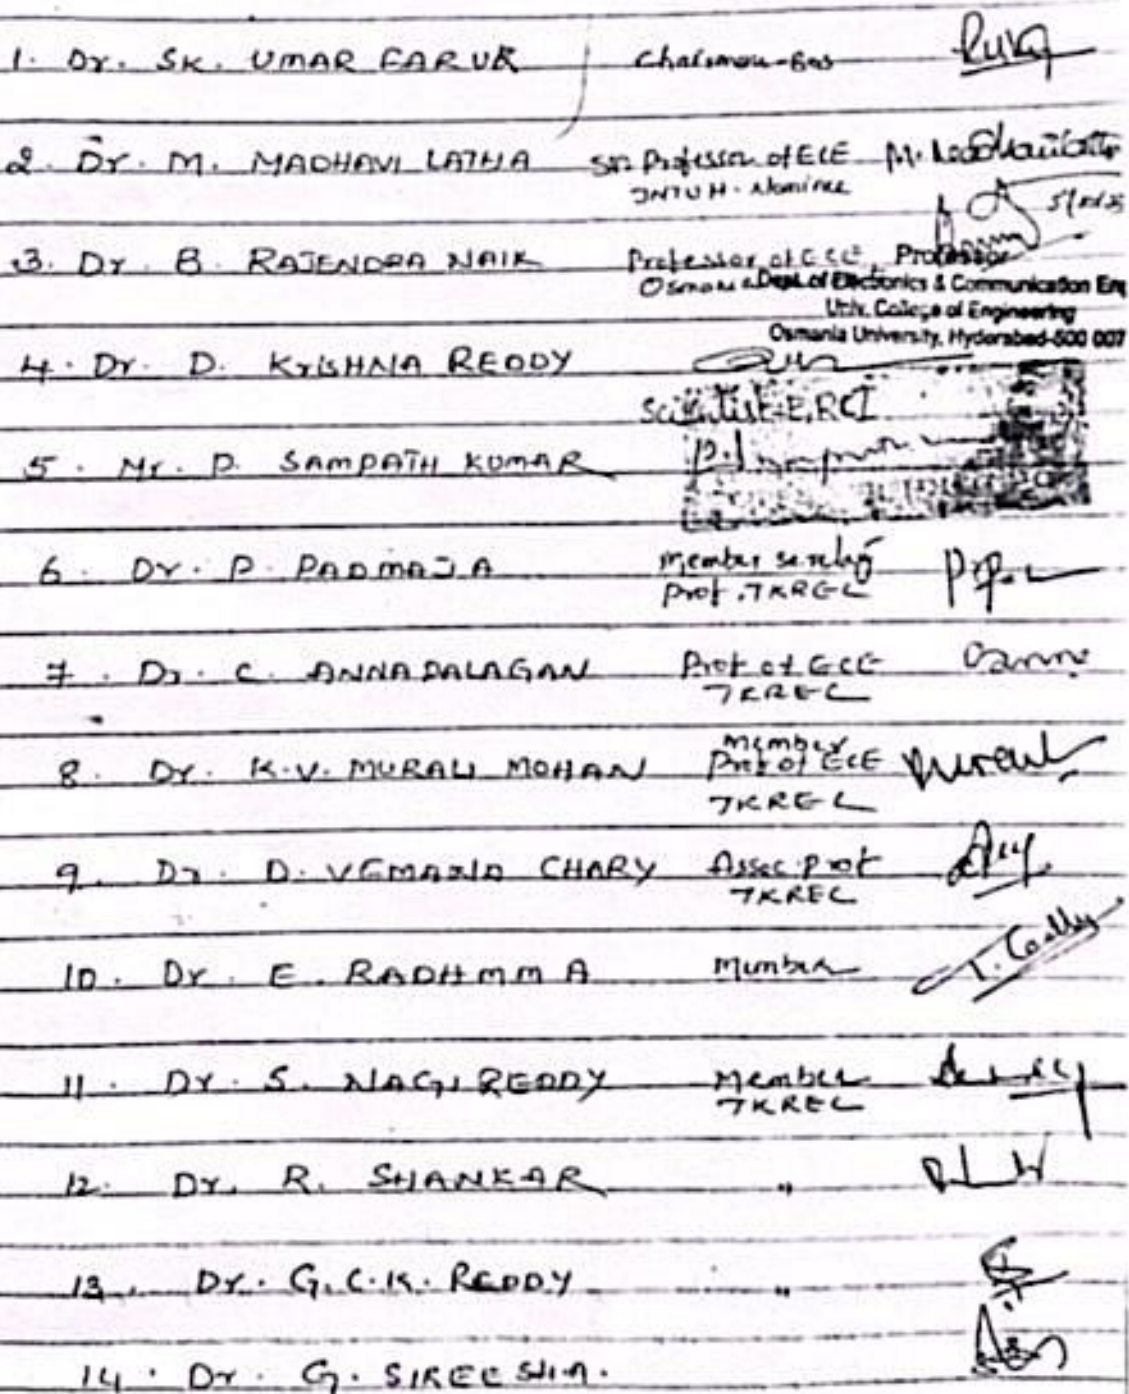 1. Dr. SK. UMAR FARUK Chairman-BoS
2. Dr. M. MADHAVI LATHA Sr. Professor of ECE
JNTUH - Nominee
3. Dr. B. RAJENDRA NAIK Professor of ECE, Professor
Dept. of Electronics & Communication Eng
Univ. College of Engineering
Osmania University, Hyderabad-500 007
4. Dr. D. KrISHNA REDDY
Scientist-E, RCI
5. Mr. P. SAMPATH KUMAR
6. Dr. P. PADMAJA Member
Prof. TKREC
7. Dr. C. ANNADALAGAN Prof of ECE
TKREC
8. Dr. K.V. MURALI MOHAN Member
Prof of ECE
TKREC
9. Dr. D. CHARY Assoc. prof
TKREC
10. Dr. E. RADHMMA Member
11. Dr. S. NAGI REDDY Member
TKREC
12. Dr. R. SHANKAR "
13. Dr. G.C.K. REDDY "
14. Dr. G. SIREESHA.